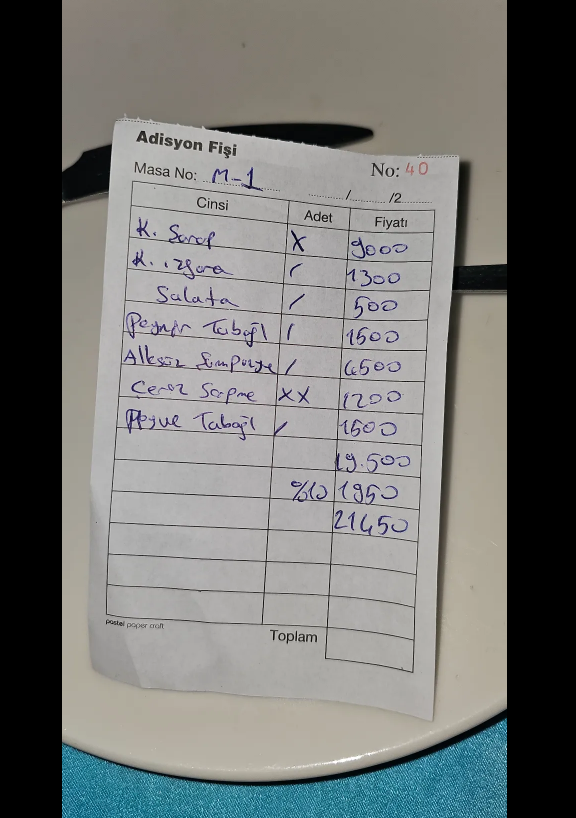 Adisyon Fişi
No: 40
Masa No: M-1 ...../...../2.....
Cinsi Adet Fiyatı
K. Sarap X 9000
K. ızgara / 1300
Salata / 500
Peynir Tabağı / 1500
Alkolsüz / 4500
Çerez XX 1200
Meyve Tabağı / 1500
19.500
%10 1950
21450
Toplam
pastel paper craft